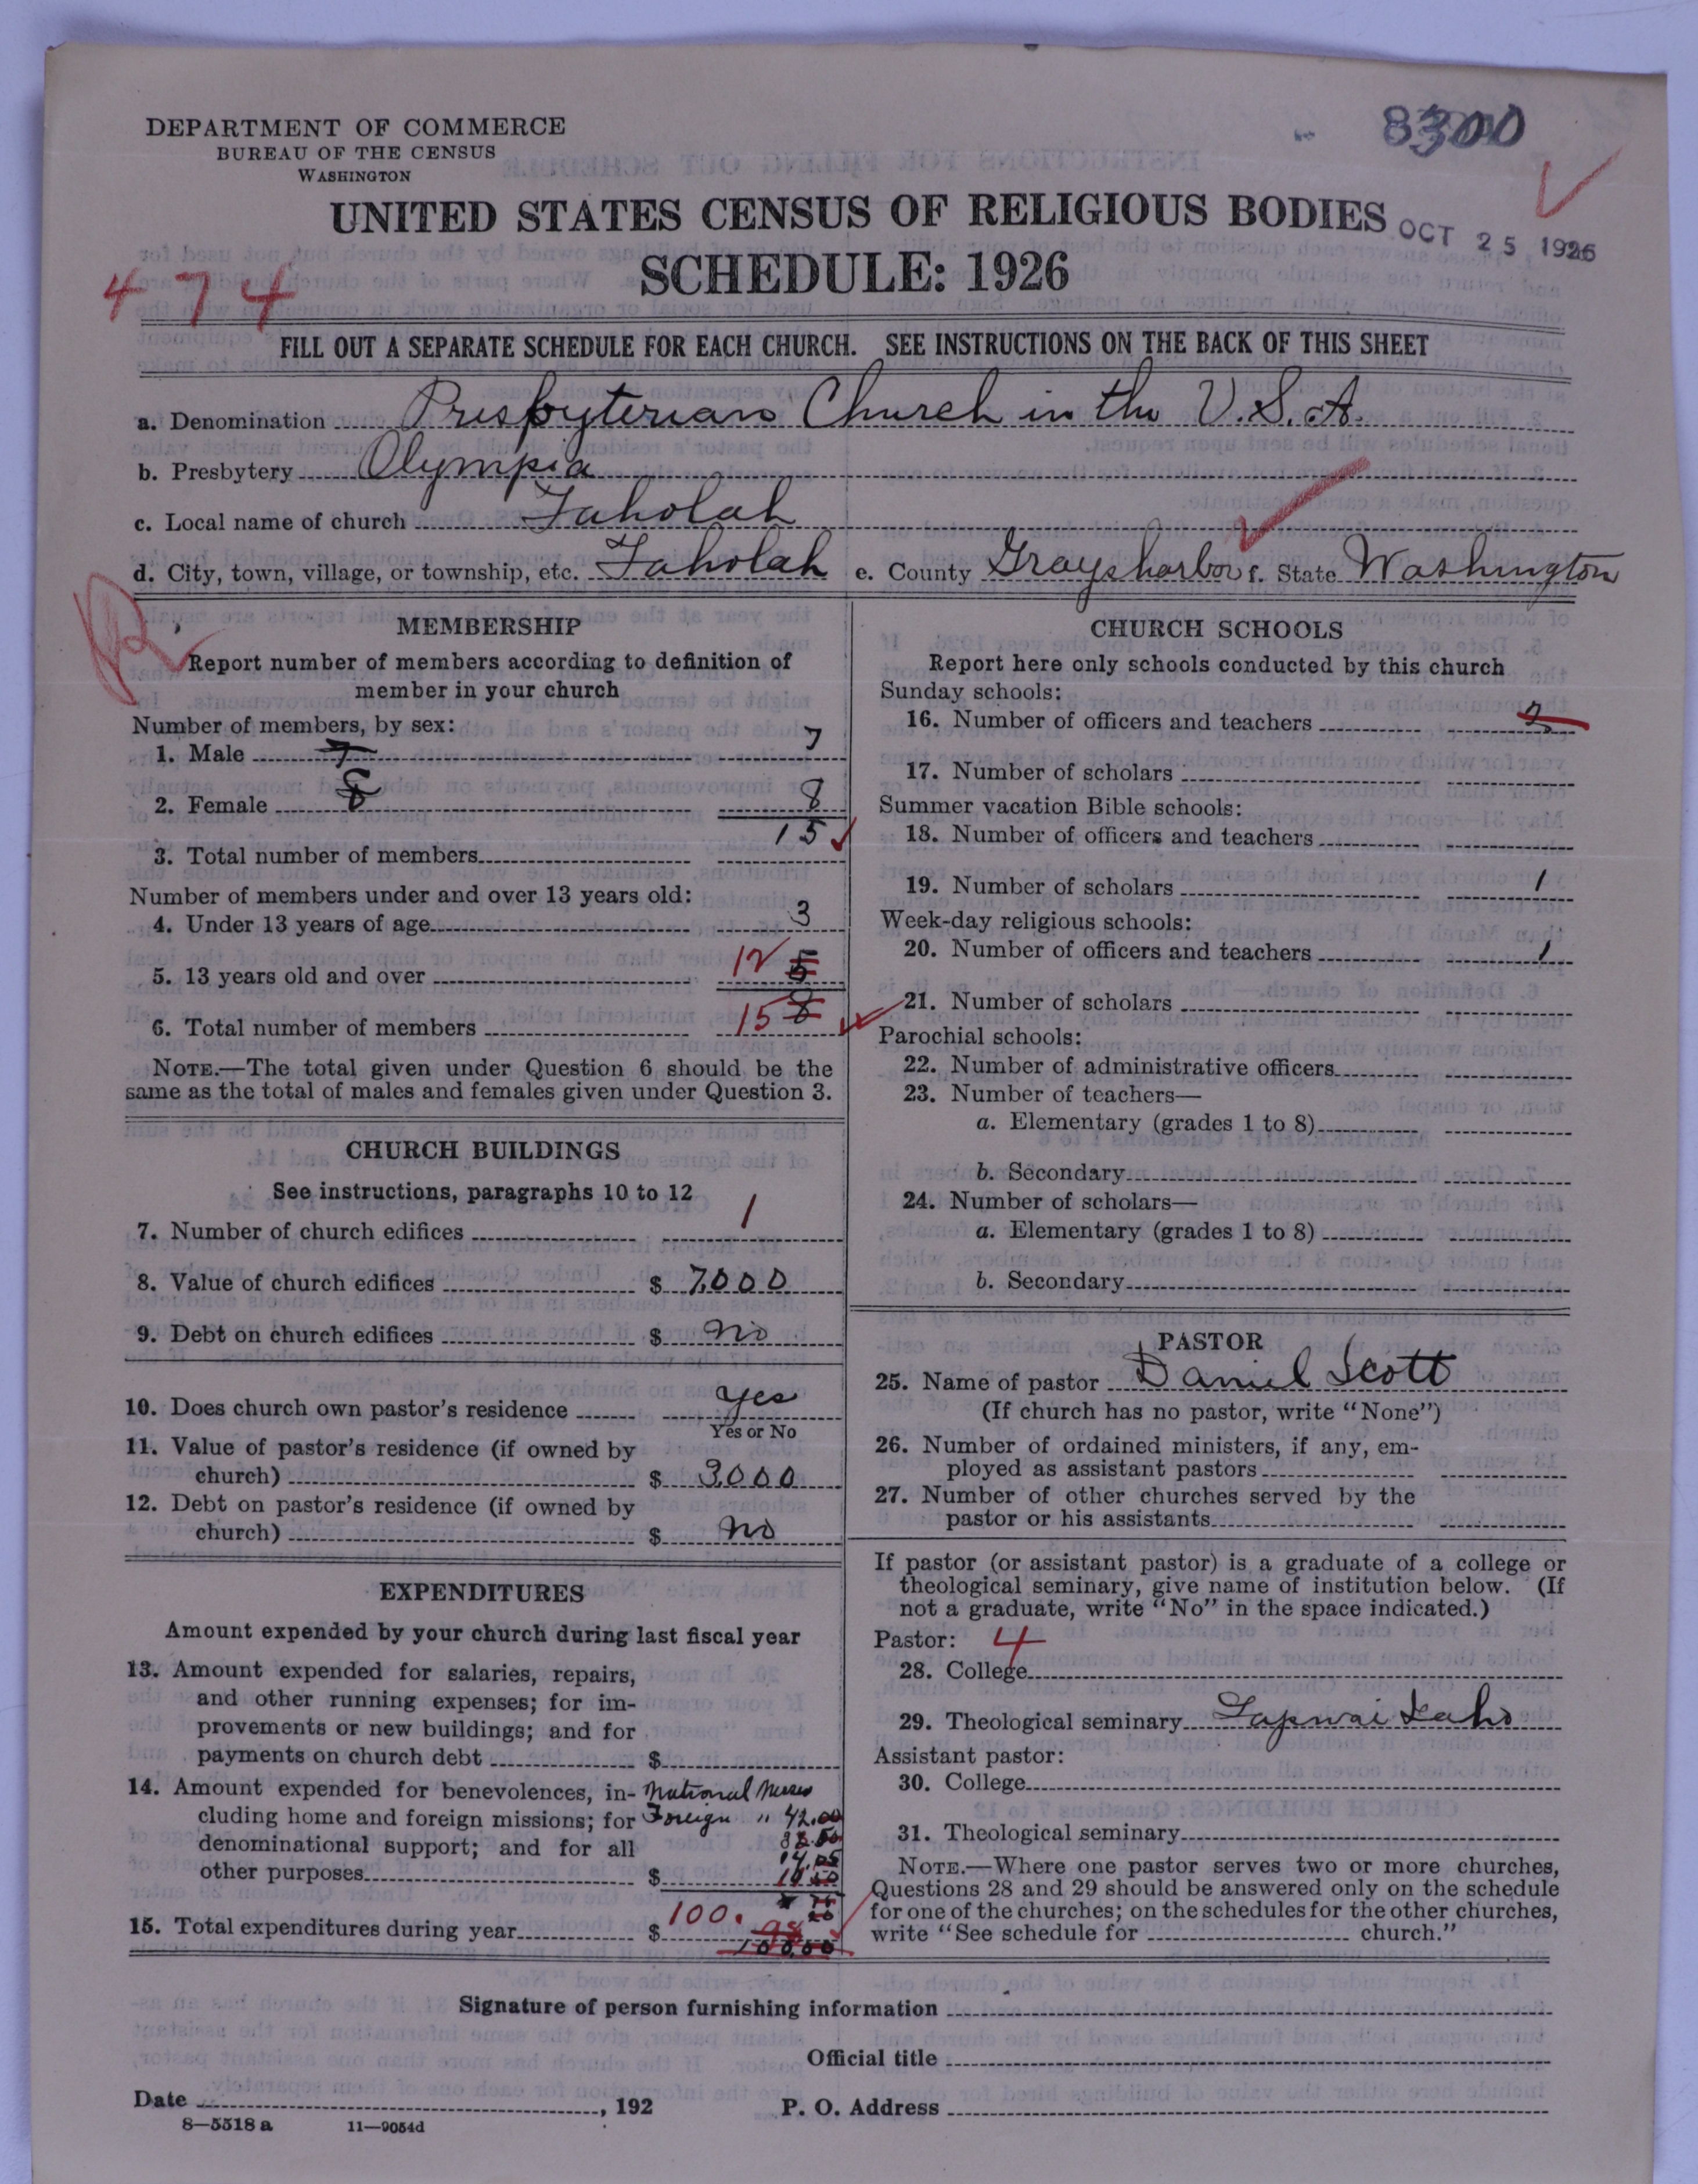 8300
DEPARTMENT OF COMMERCE
BUREAU OF THE CENSUS
WASHINGTON
UNITED STATES CENSUS OF RELIGIOUS BODIES
OCT 25 1926
SCHEDULE: 1926
474
FILL OUT A SEPARATE SCHEDULE FOR EACH CHURCH. SEE INSTRUCTIONS ON THE BACK OF THIS SHEET
a. Denomination Presbyterian Church in the U.S.A.
b. Presbytery Olympia
c. Local name of church Taholah
d. City, town, village, or township, etc. Taholah e. County Graysharbor f. State Washington
MEMBERSHIP
Report number of members according to definition of
member in your church
Number of members, by sex:
1. Male 7 7
2. Female 8 8
15
3. Total number of members
Number of members under and over 13 years old:
4. Under 13 years of age 3
5. 13 years old and over 12 5
6. Total number of members 15 8
NOTE.—The total given under Question 6 should be the
same as the total of males and females given under Question 3.
CHURCH BUILDINGS
See instructions, paragraphs 10 to 12
7. Number of church edifices 1
8. Value of church edifices $ 7,000
9. Debt on church edifices $ no
10. Does church own pastor's residence yes
Yes or No
11. Value of pastor's residence (if owned by
church) $ 3,000
12. Debt on pastor's residence (if owned by
church) $ no
EXPENDITURES
Amount expended by your church during last fiscal year
13. Amount expended for salaries, repairs,
and other running expenses; for im-
provements or new buildings; and for
payments on church debt $
14. Amount expended for benevolences, in- National
cluding home and foreign missions; for Foreign " 42.00
denominational support; and for all
other purposes $
15. Total expenditures during year $ 100.
100.00
CHURCH SCHOOLS
Report here only schools conducted by this church
Sunday schools:
16. Number of officers and teachers 2
17. Number of scholars
Summer vacation Bible schools:
18. Number of officers and teachers
19. Number of scholars 1
Week-day religious schools:
20. Number of officers and teachers 1
21. Number of scholars
Parochial schools:
22. Number of administrative officers
23. Number of teachers—
a. Elementary (grades 1 to 8)
b. Secondary
24. Number of scholars—
a. Elementary (grades 1 to 8)
b. Secondary
PASTOR
25. Name of pastor Daniel Scott
(If church has no pastor, write "None")
26. Number of ordained ministers, if any, em-
ployed as assistant pastors
27. Number of other churches served by the
pastor or his assistants
If pastor (or assistant pastor) is a graduate of a college or
theological seminary, give name of institution below. (If
not a graduate, write "No" in the space indicated.)
Pastor: 4
28. College
29. Theological seminary Lapwai Idaho
Assistant pastor:
30. College
31. Theological seminary
NOTE.—Where one pastor serves two or more churches,
Questions 28 and 29 should be answered only on the schedule
for one of the churches; on the schedules for the other churches,
write "See schedule for church."
Signature of person furnishing information
Official title
Date , 192
P. O. Address
8—5518 a 11—9054d